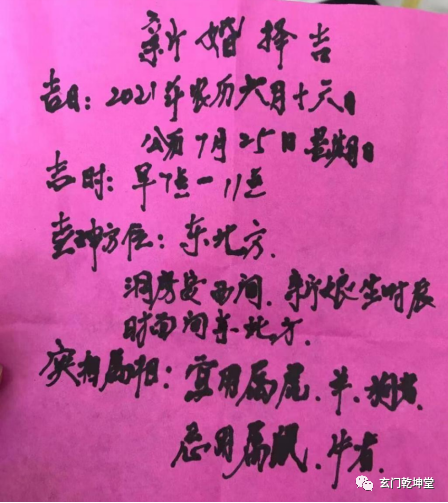 新婚择吉
吉日：2021年农历六月十六日
公历7月25日星期日
吉时：早7点一11点
喜神方位：东北方.
洞房安西间.新娘坐时辰
时面向东北方.
宾相属相：宜用属虎、羊、狗者.
忌用属鼠、牛者.
玄门乾坤堂